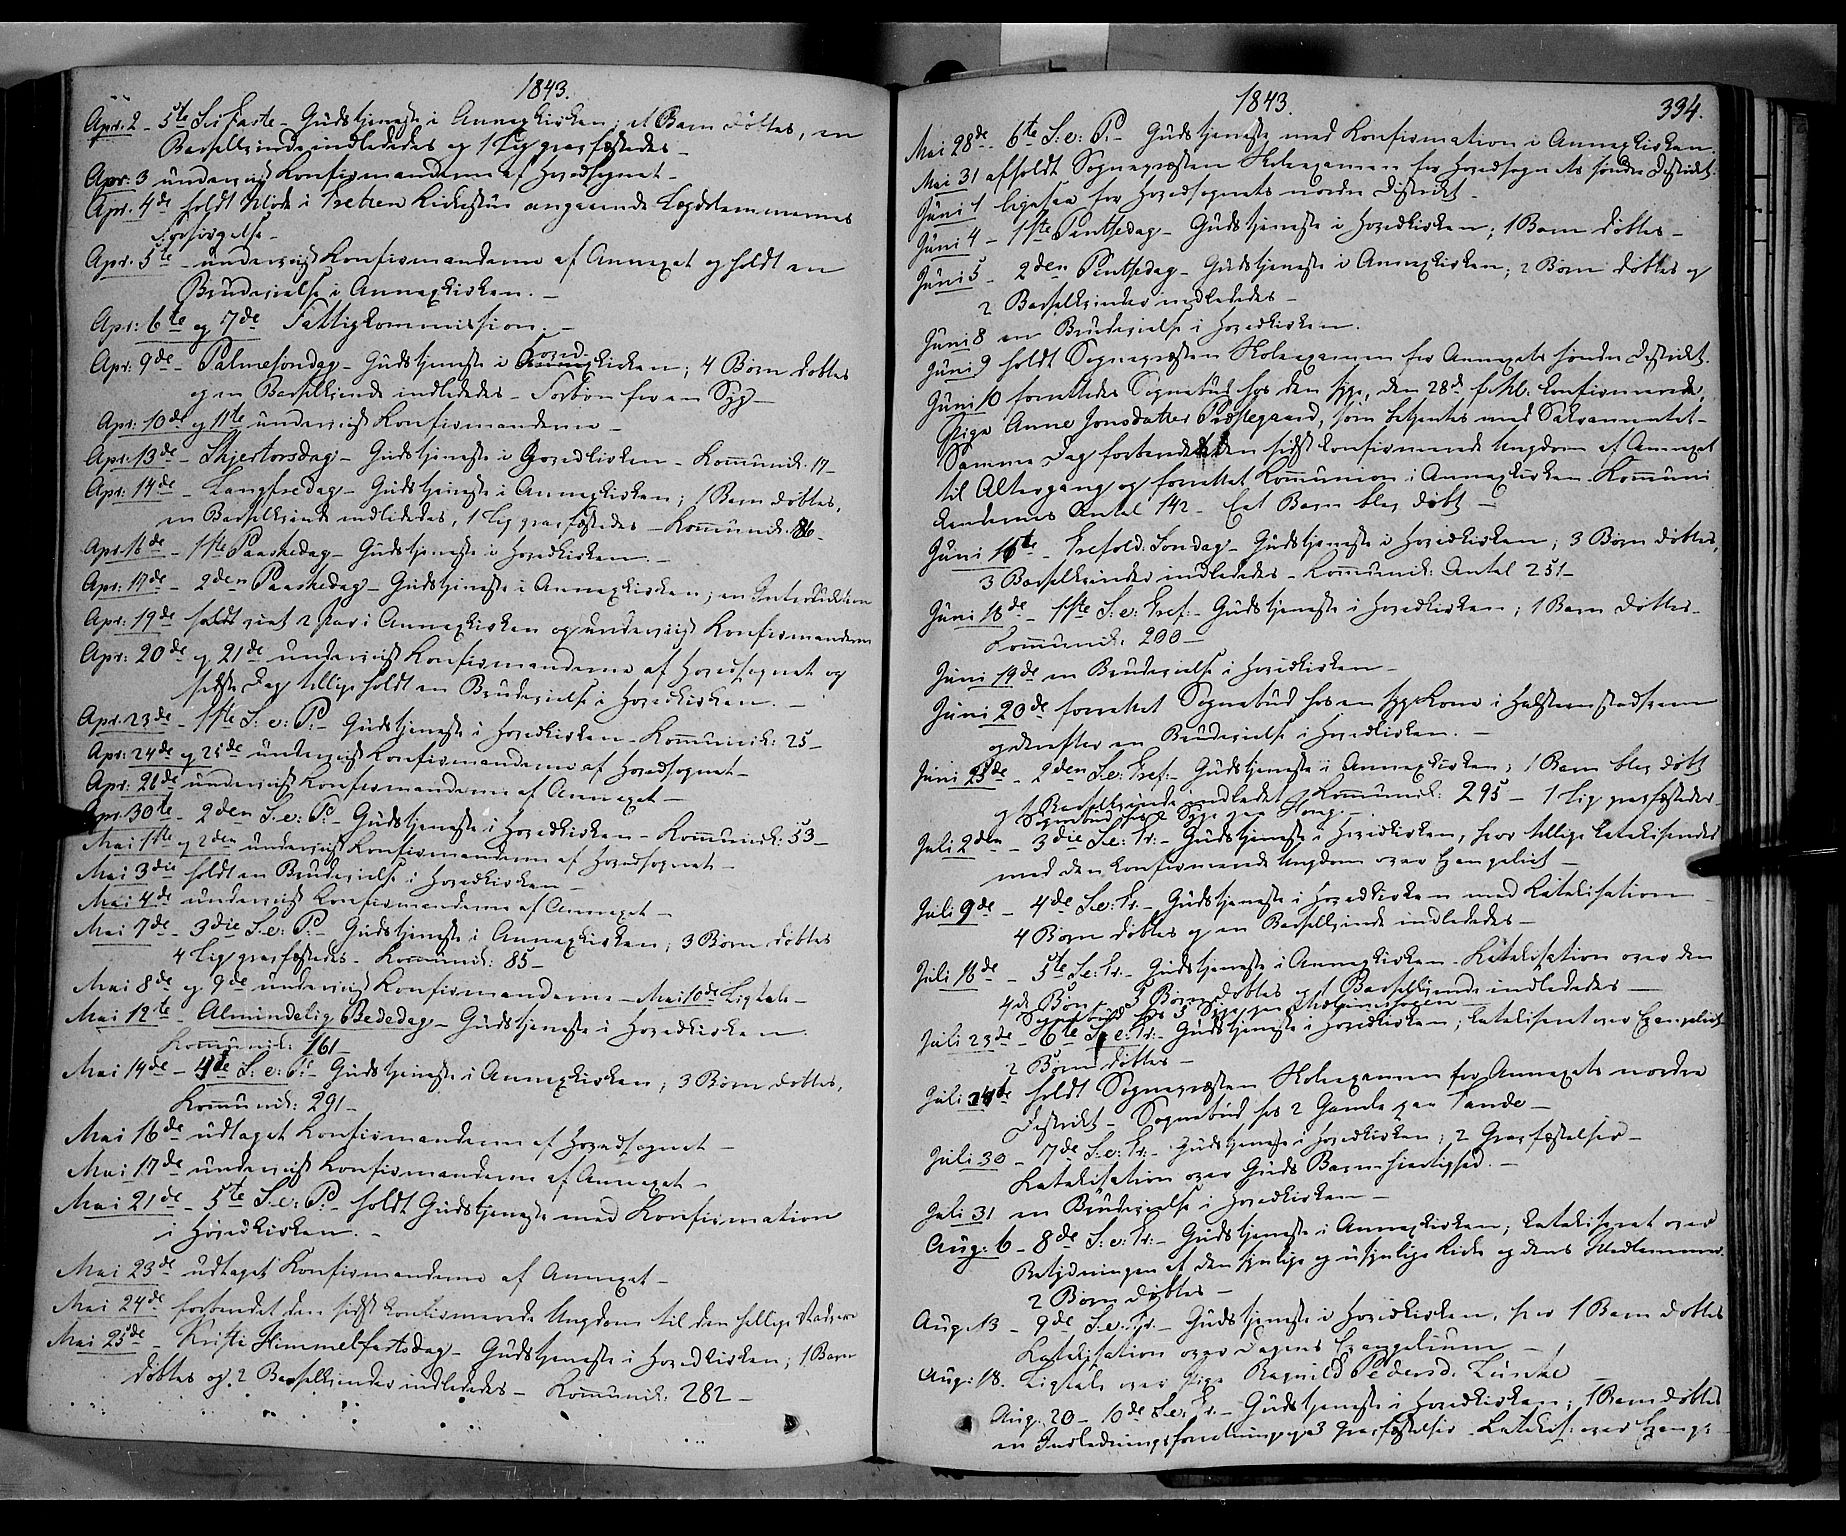 1843.
Apr. 2 - 5te S. i Faste - Gudstjeneste i Annexkirken; et Barn døbtes, en
Barselkvinde indlededes og 1 Lig græsfæstedes -
Apr. 3 underviist Konfirmanderne af Hovedsognet -
Apr. 4de holdt Møde i Tretten Kirkestue angaaende Lægdslemmernes
Forsørgelse -
Apr. 5te - underviist Konfirmanderne af Annexet og holdt en
Brudevielse i Annexkirken. -
Apr: 6te og 7de Fattigkommission. -
Apr. 9de - Palmesøndag - Gudstjeneste i Hovedkirken; 4 Børn døbtes
og en Barselkvinde indlededes - Forbøn for en Syg -
Apr: 10de og 11te underviist Konfirmanderne -
Apr: 13de - Skjertorsdag - Gudstjeneste i Hovedkirken - Kommunik. 17 -
Apr: 14de - Langfredag - Gudstjeneste i Annexkirken; 1 Barn døbtes,
en Barselkvinde indlededes, 1 Lig græsfæstedes - Kommunik. 86 -
Apr. 16de - 1ste Paaskedag - Gudstjeneste i Hovedkirken. -
Apr: 17de - 2den Paaskedag - Gudstjeneste i Annexkirken; en Introduktion
Apr: 19de holdt viet 2 Par i Annexkirken og underviist Konfirmanderne
Apr: 20de og 21de underviist Konfirmanderne af Hovedsognet og
sidste Dag tillige holdt en Brudevielse i Hovedkirken. -
Apr. 23de - 1ste S: e: P: - Gudstjeneste i Hovedkirken - Kommunik: 25 -
Apr: 24de og 25de underviist Konfirmanderne af Hovedsognet -
Apr: 26de underviist Konfirmanderne af Annexet -
Apr. 30te - 2den S. e: P: - Gudstjeneste i Hovedkirken - Kommunik: 53 -
Mai 1ste og 2den underviist Konfirmanderne af Hovedsognet -
Mai 3die holdt en Brudevielse i Hovedkirken -
Mai 4de underviist Konfirmanderne af Annexet -
Mai 7de - 3die S. e: P: - Gudstjeneste i Annexkirken; 3 Børn døbtes
4 Lig græsfæstedes - Kommunik: 85 -
Mai 8de og 9de underviist Konfirmanderne - Mai 10de Ligtale -
Mai 12te - Almindelig Bededag - Gudstjeneste i Hovedkirken.
Kommunik: 161 -
Mai 14de - 4de S: e: P: - Gudstjeneste i Annexkirken; 3 Børn døbtes,
Kommunik: 291 -
Mai 16de udtaget Konfirmanderne af Hovedsognet -
Mai 17de underviist Konfirmanderne af Annexet -
Mai 21de - 5te S. e: P: - holdt Gudstjeneste med Konfirmation
i Hovedkirken. -
Mai 23de udtaget Konfirmanderne af Annexet -
Mai 24de forberedet den sidst konfirmerede Ungdom til den hellige Nadvere
Mai 25de - Kristi Himmelfartsdag - Gudstjeneste i Hovedkirken; 1 Barn
døbtes og 2 Barselkvinder indlededes - Kommunik: 282 -
1843. 394.
Mai 28de - 6te S. e: P: - Gudstjeneste med Konfirmation i Annexkirken.
Mai 31 afholdt Sognepræsten Skoleexamen for Hovedsognets søndre Distrikt.
Juni 1 ligesaa for Hovedsognets nordre Distrikt -
Juni 4 - 1ste Pintsedag - Gudstjeneste i Hovedkirken; 1 Barn døbtes -
Juni 5 - 2den Pintsedag - Gudstjeneste i Annexkirken; 2 Børn døbtes og
2 Barselkvinder indlededes -
Juni 8 en Brudevielse i Hovedkirken.
Juni 9 holdt Sognepræsten Skoleexamen for Annexets søndre Distrikt.
Juni 10 forrettedes Sognebud hos den syge, den 28d. f. M. konfirmerede,
Pige Anne Jonsdatter Præstegaard, som betjentes med Sakramentet -
Samme Dag forberedt den sidst konfirmerede Ungdom af Annexet
til Altergang og forrettet Kommunion i Annexkirken - Kommuni
kendernes Antal 142 - Eet Barn blev døbt -
Juni 11te - Trefold. Søndag - Gudstjeneste i Hovedkirken; 3 Børn døbtes,
3 Barselkvinder indlededes - Kommunik: Antal 251 -
Juni 18de - 1ste S: e: Tref. - Gudstjeneste i Hovedkirken; 1 Barn døbtes -
Kommunik: 200 -
Juni 19de en Brudevielse i Hovedkirken -
Juni 20de forrettet Sognebud hos en syg Kone i
og derefter en Brudevielse i Hovedkirken. -
Juni 25de - 2den S. e: Tref: - Gudstjeneste i Annexkirken; 1 Barn blev døbt
og 1 Barselkvinde indledet; Kommunik: 295 - 1 Lig græsfæstedes -
Sognebud hos 2 Syge paa
Juli 2den - 3die S. e: Tr: - Gudstjeneste i Hovedkirken, hvor tillige katekiseredes
med den konfirmerede Ungdom over Evangeliet -
Juli 9de - 4de S. e: Tr. - Gudstjeneste i Hovedkirken med Katekisation -
4 Børn døbtes og en Barselkvinde indlededes -
Juli 16de - 5te S. e: Tr. - Gudstjeneste i Annexkirken - Katekisation over den
4de Bøn - 3 Børn døbtes og 1 Barselkvinde indlededes -
Sognebud hos 3 Syge paa
Juli 23de - 6te S. e: Tr: - Gudstjeneste i Hovedkirken; katekiseret over Evangeliet
2 Børn døbtes -
Juli holdt Sognepræsten Skoleexamen for Annexets nordre
Distrikt - Sognebud hos 2 Gamle paa Tande -
Juli 30 - 7de S. e: Tr: - Gudstjeneste i Hovedkirken; 2 Græsfæstelser -
Katekisation over Guds Barmhjertighed. -
Juli 31 en Brudevielse i Hovedkirken -
Aug: 6 - 8de S: e: Tr: - Gudstjeneste i Annexkirken; katekiseret over
Betydningen af den synlige og usynlige Kirke og dens Medlemmer.
2 Børn døbtes -
Aug. 13 - 9de S. e. Tr. - Gudstjeneste i Hovedkirken, hvor 1 Barn døbtes
Katekisation over Dagens Evangelium -
Aug: 18. Ligtale over Pige Ragnild Pedersd.
Aug. 20 - 10de S. e: Tr. - Gudstjeneste i Hovedkirken; 1 Barn døbtes
en Indledningsforretning og 3 Græsfæstelser - Katekis: over Evang: